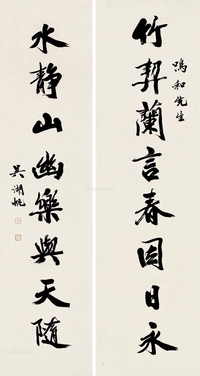 鳴和先生
竹契蘭言春同日永
水静山幽樂與天隨
吳湖帆